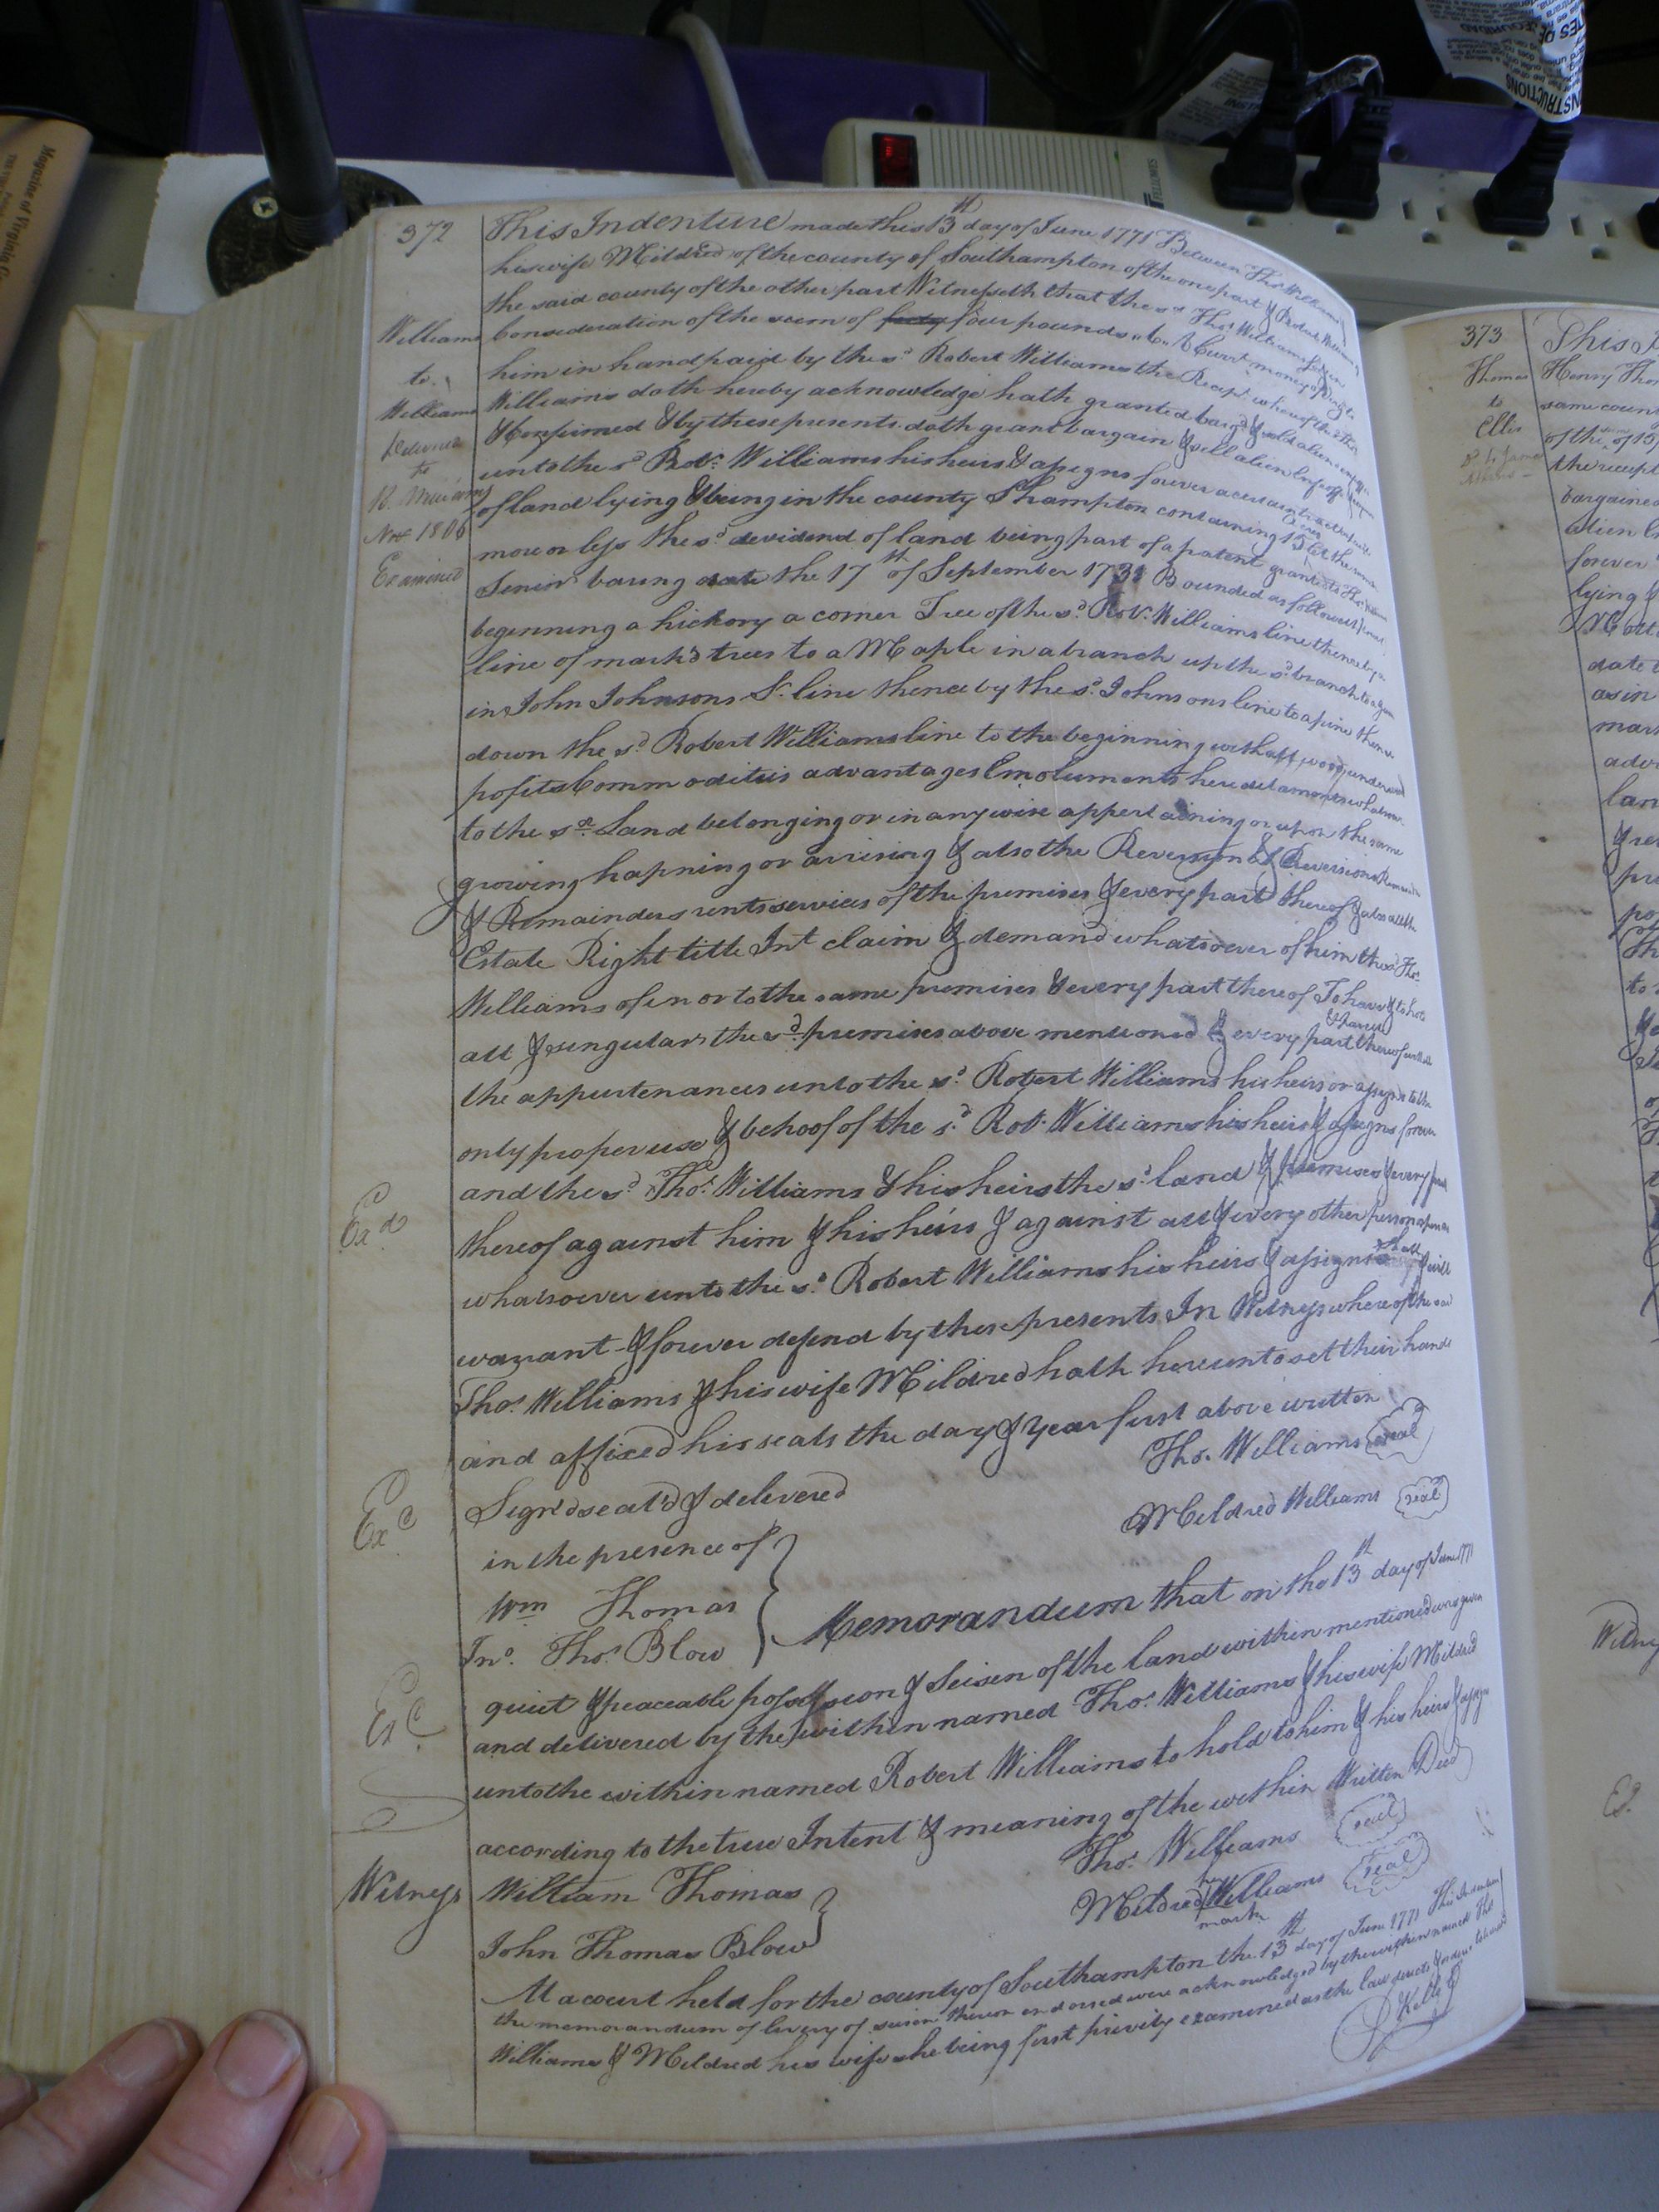 Magazine of Virginia
FELLOWES
INSTRUCTIONS
372
This Indenture made this 13th day of June 1771 Between Thos Williams &
his wife Mildred of the county of Southampton of the one part & Robert Williams of
the said county of the other part Witnesseth that the sd Thos Williams for & in
Consederation of the seum of four pounds Curt money of
him in hand paid by the sd Robert Williams the Recept whereof the sd Thos
Williams doth hereby acknowledge hath granted bargd & sold alien
& Confirmed & by these presents doth grant bargain & sell alien Enfeoff &
unto the sd Robt Williams his heirs & assigns forever a certain
of land lying & being in the county Shampton containing 15 acres
more or less the sd devidend of land being part of a patent granted to Thos Williams
Senior baring date the 17th of September 1731 Bounded as followeth
beginning a hickory a corner Tree of the sd Robt Williams line thence by a
line of mark'd trees to a Maple in a branch up the sd branch to a
in John Johnsons Sr line thence by the sd Johnsons line to a pine thence
down the sd Robert Williams line to the beginning with all woods underwood
profits Commoditiis advantages Emoluments heredetaments whatsoever
to the sd Land belonging or in any wise appertaining or upon the same
growing hapning or arrising & also the Reversion & Reversions Remainder
& Remainders rents services of the premises & every part thereof & also all the
Estate Right title Int claim & demand whatsoever of him the sd Thos
Williams of in or to the same premises & every part thereof To have & to hold
all & singular the sd premises above mentioned & every part & parcel thereof with all
the appurtenances unto the sd Robert Williams his heirs or assigns to the
only proper use & behoof of the sd Robt Williams his heirs & assigns forever
and the sd Thos Williams & his heirs the sd land & premises & every part
thereof against him & his heirs & against all & every other person
whatsoever unto the sd Robert Williams his heirs & assigns shall & will
warrant & forever defend by these presents In Witness whereof the said
Thos Williams & his wife Mildred hath hereunto set their hands
and affixed his seals the day & Year first above written
Thos. Williams seal
Sign'd seal'd & delivered
Mildred Williams seal
in the presence of
Wm Thomas
Jno. Thos. Blow
Memorandum that on the 13th day of June 1771
quiet & peaceable possession & Seisen of the land within mentioned was given
and delivered by the within named Thos Williams & his wife Mildred
unto the within named Robert Williams to hold to him & his heirs & assigns
according to the true Intent & meaning of the within Written Deed
Thos Williams seal
Witness William Thomas
Mildred Williams seal
mark
John Thomas Blow
At a court held for the county of Southampton the 13th day of June 1771 This Indenture
the memorandum of livery of seisin thereon endorsed were acknowledged by the within named Thos
Williams & Mildred his wife she being first privily examined as the law directs & ordered to be recorded
Williams
to
Williams
Delivered
to
R. Williams
Novr 1806
Examined
Exd
Exd
Exd
373
This
Thomas
to
Ellis
Henry Thom
same count
of the
the recept
bargained
alien
forever
lying &
date
as in
mar
adv
lan
Witness